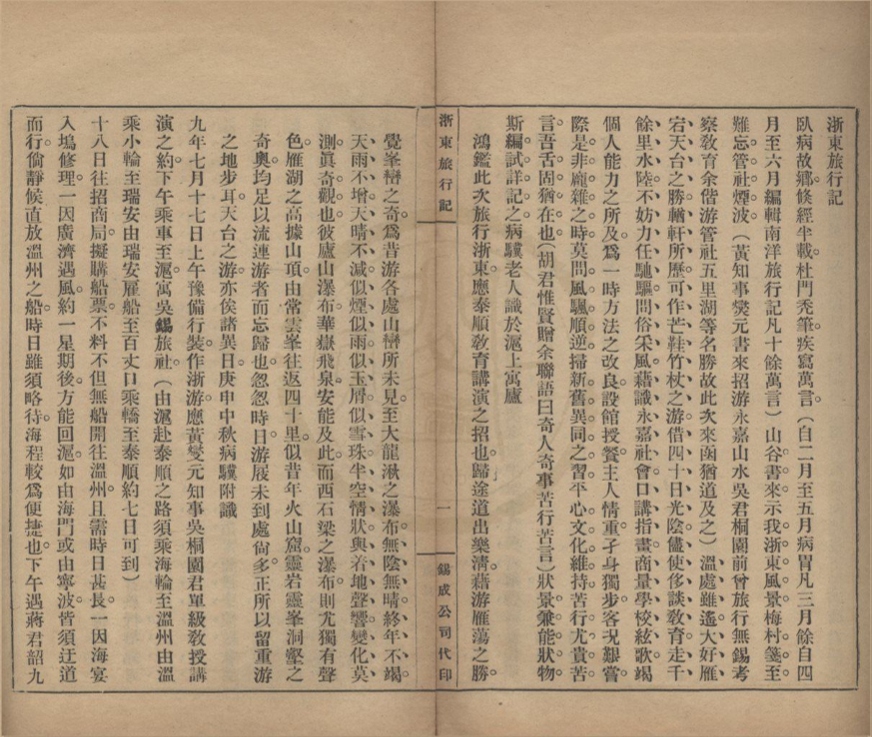 浙東旅行記
臥病故鄉倏經半載杜門禿筆疾寫萬言（自二月至五月病胃凡三月餘自四
月至六月編輯南洋旅行記凡十餘萬言）山谷書來示我浙東風景梅村箋至
難忘管社煙波（黃知事燮元書來招游永嘉山水吳君桐園前曾旅行無錫考
察敎育余偕游管社五里湖等名勝故此次來函猶道及之）溫處雖遙大好雁
宕天台之勝輶軒所歷可作芒鞋竹杖之游借四十日光陰儘使侈談敎育走千
餘里水陸不妨力任馳驅問俗采風藉識永嘉社會口講指畫商量學校絃歌竭
個人能力之所及爲一時方法之改良設館授餐主人情重孑身獨步客况艱嘗
際是非龐雜之時莫問風颿順逆掃新舊異同之習平心文化維持苦行尤貴苦
言吾舌固猶在也（胡君惟賢贈余聯語曰奇人奇事苦行苦言）狀景兼能狀物
斯編試詳記之病驥老人識於滬上寓廬
鴻鑑此次旅行浙東應泰順敎育講演之招也歸途道出樂淸藉游雁蕩之勝
浙東旅行記
一
錫成公司代印
覺峯巒之奇爲昔游各處山巒所未見至大龍湫之瀑布無陰無晴終年不竭
天雨不增天晴不減似煙似雨似玉屑似雪珠半空情狀與着地聲響變化莫
測眞奇觀也彼廬山瀑布華嶽飛泉安能及此而西石梁之瀑布則尤獨有聲
色雁湖之高據山頂由常雲峯往返四十里似昔年火山窟靈岩靈峯洞壑之
奇奧均足以流連游者而忘歸也忽忽時日游屐未到處尙多正所以留重游
之地步耳天台之游亦俟諸異日庚申中秋病驥附識
九年七月十七日上午豫備行裝作浙游應黃燮元知事吳桐園君單級敎授講
演之約下午乘車至滬寓吳錫旅社（由滬赴泰順之路須乘海輪至溫州由溫
乘小輪至瑞安由瑞安雇船至百丈口乘轎至泰順約七日可到）
十八日往招商局擬購船票不料不但無船開往溫州且需時日甚長一因海宴
入塢修理一因廣濟遇風約一星期後方能回滬如由海門或由寧波皆須迂道
而行倘靜候直放溫州之船時日雖須略待海程較爲便捷也下午遇蔣君韶九